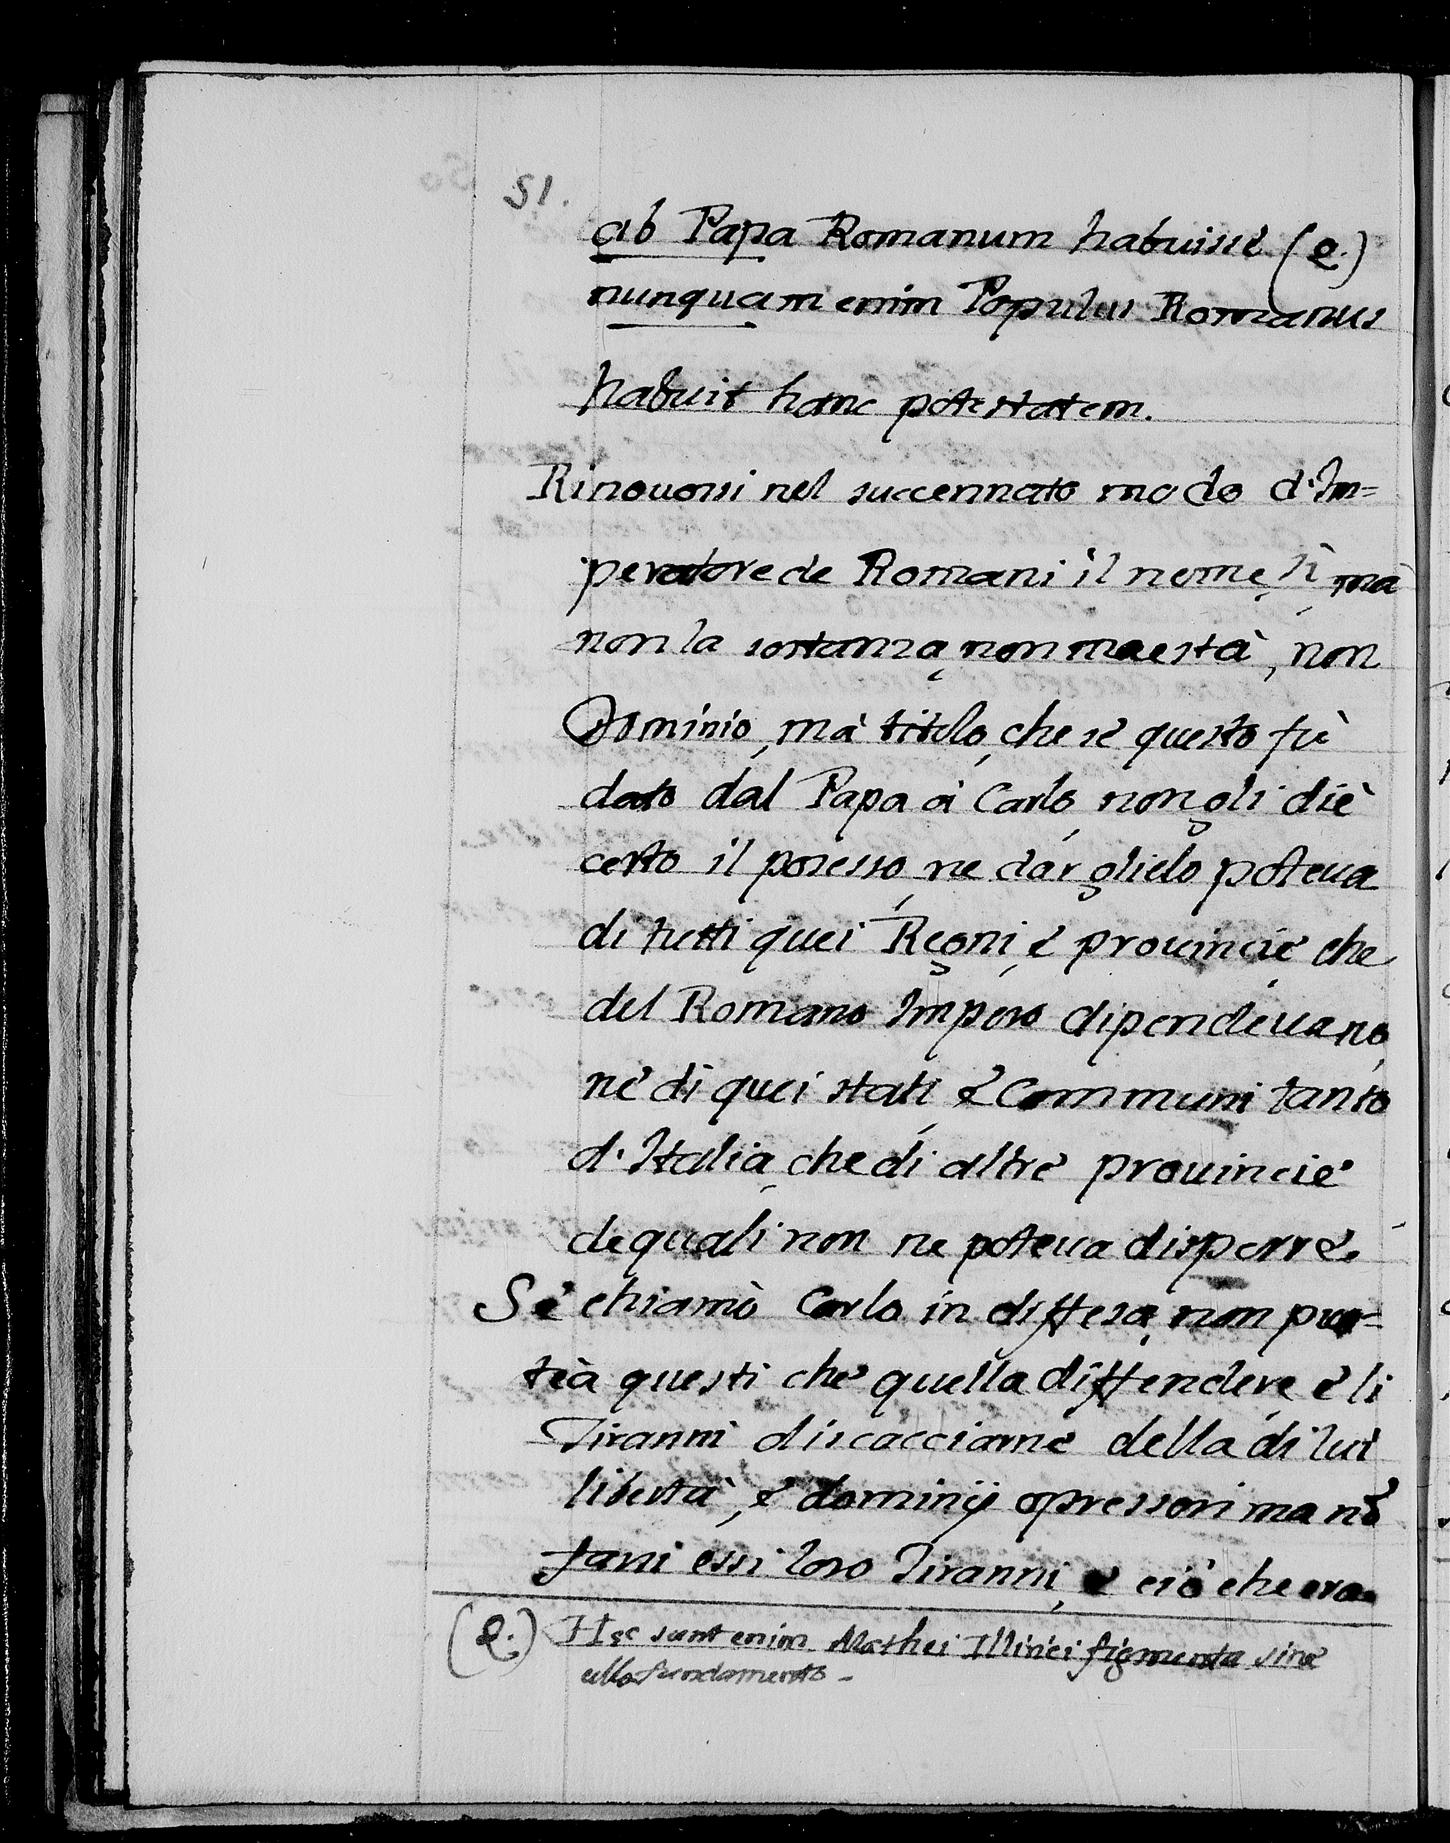 51.
ab Papa Romanum habuisse (e.)
nunquam enim Populus Romanus
habuit hanc potestatem.
Rinovossi nel succennato modo d'Im=
peratore de Romani il nome, sì, mà
non la sostanza, non maestà, non
Dominio, mà titolo, che se questo fù
dato dal Papa à Carlo, non gli diè
certo il posesso, ne darglielo poteva
di tutti quei Regni, è provincie che
del Romano Impero dipendevano,
nè di quei stati, è Communi tanto
d'Italia, che di altre provincie
de quali non ne poteva disporre.
Se chiamò Carlo in diffesa, non
questi che quella diffendere, è li
Tiranni discacciarne della di lui
libertà, è dominij opressori ma nō
farsi essi loro Tiranni, è ciò che era
(e.) Hęc sunt enim Mathei Illirici figmenta sine
ullo fundamento -